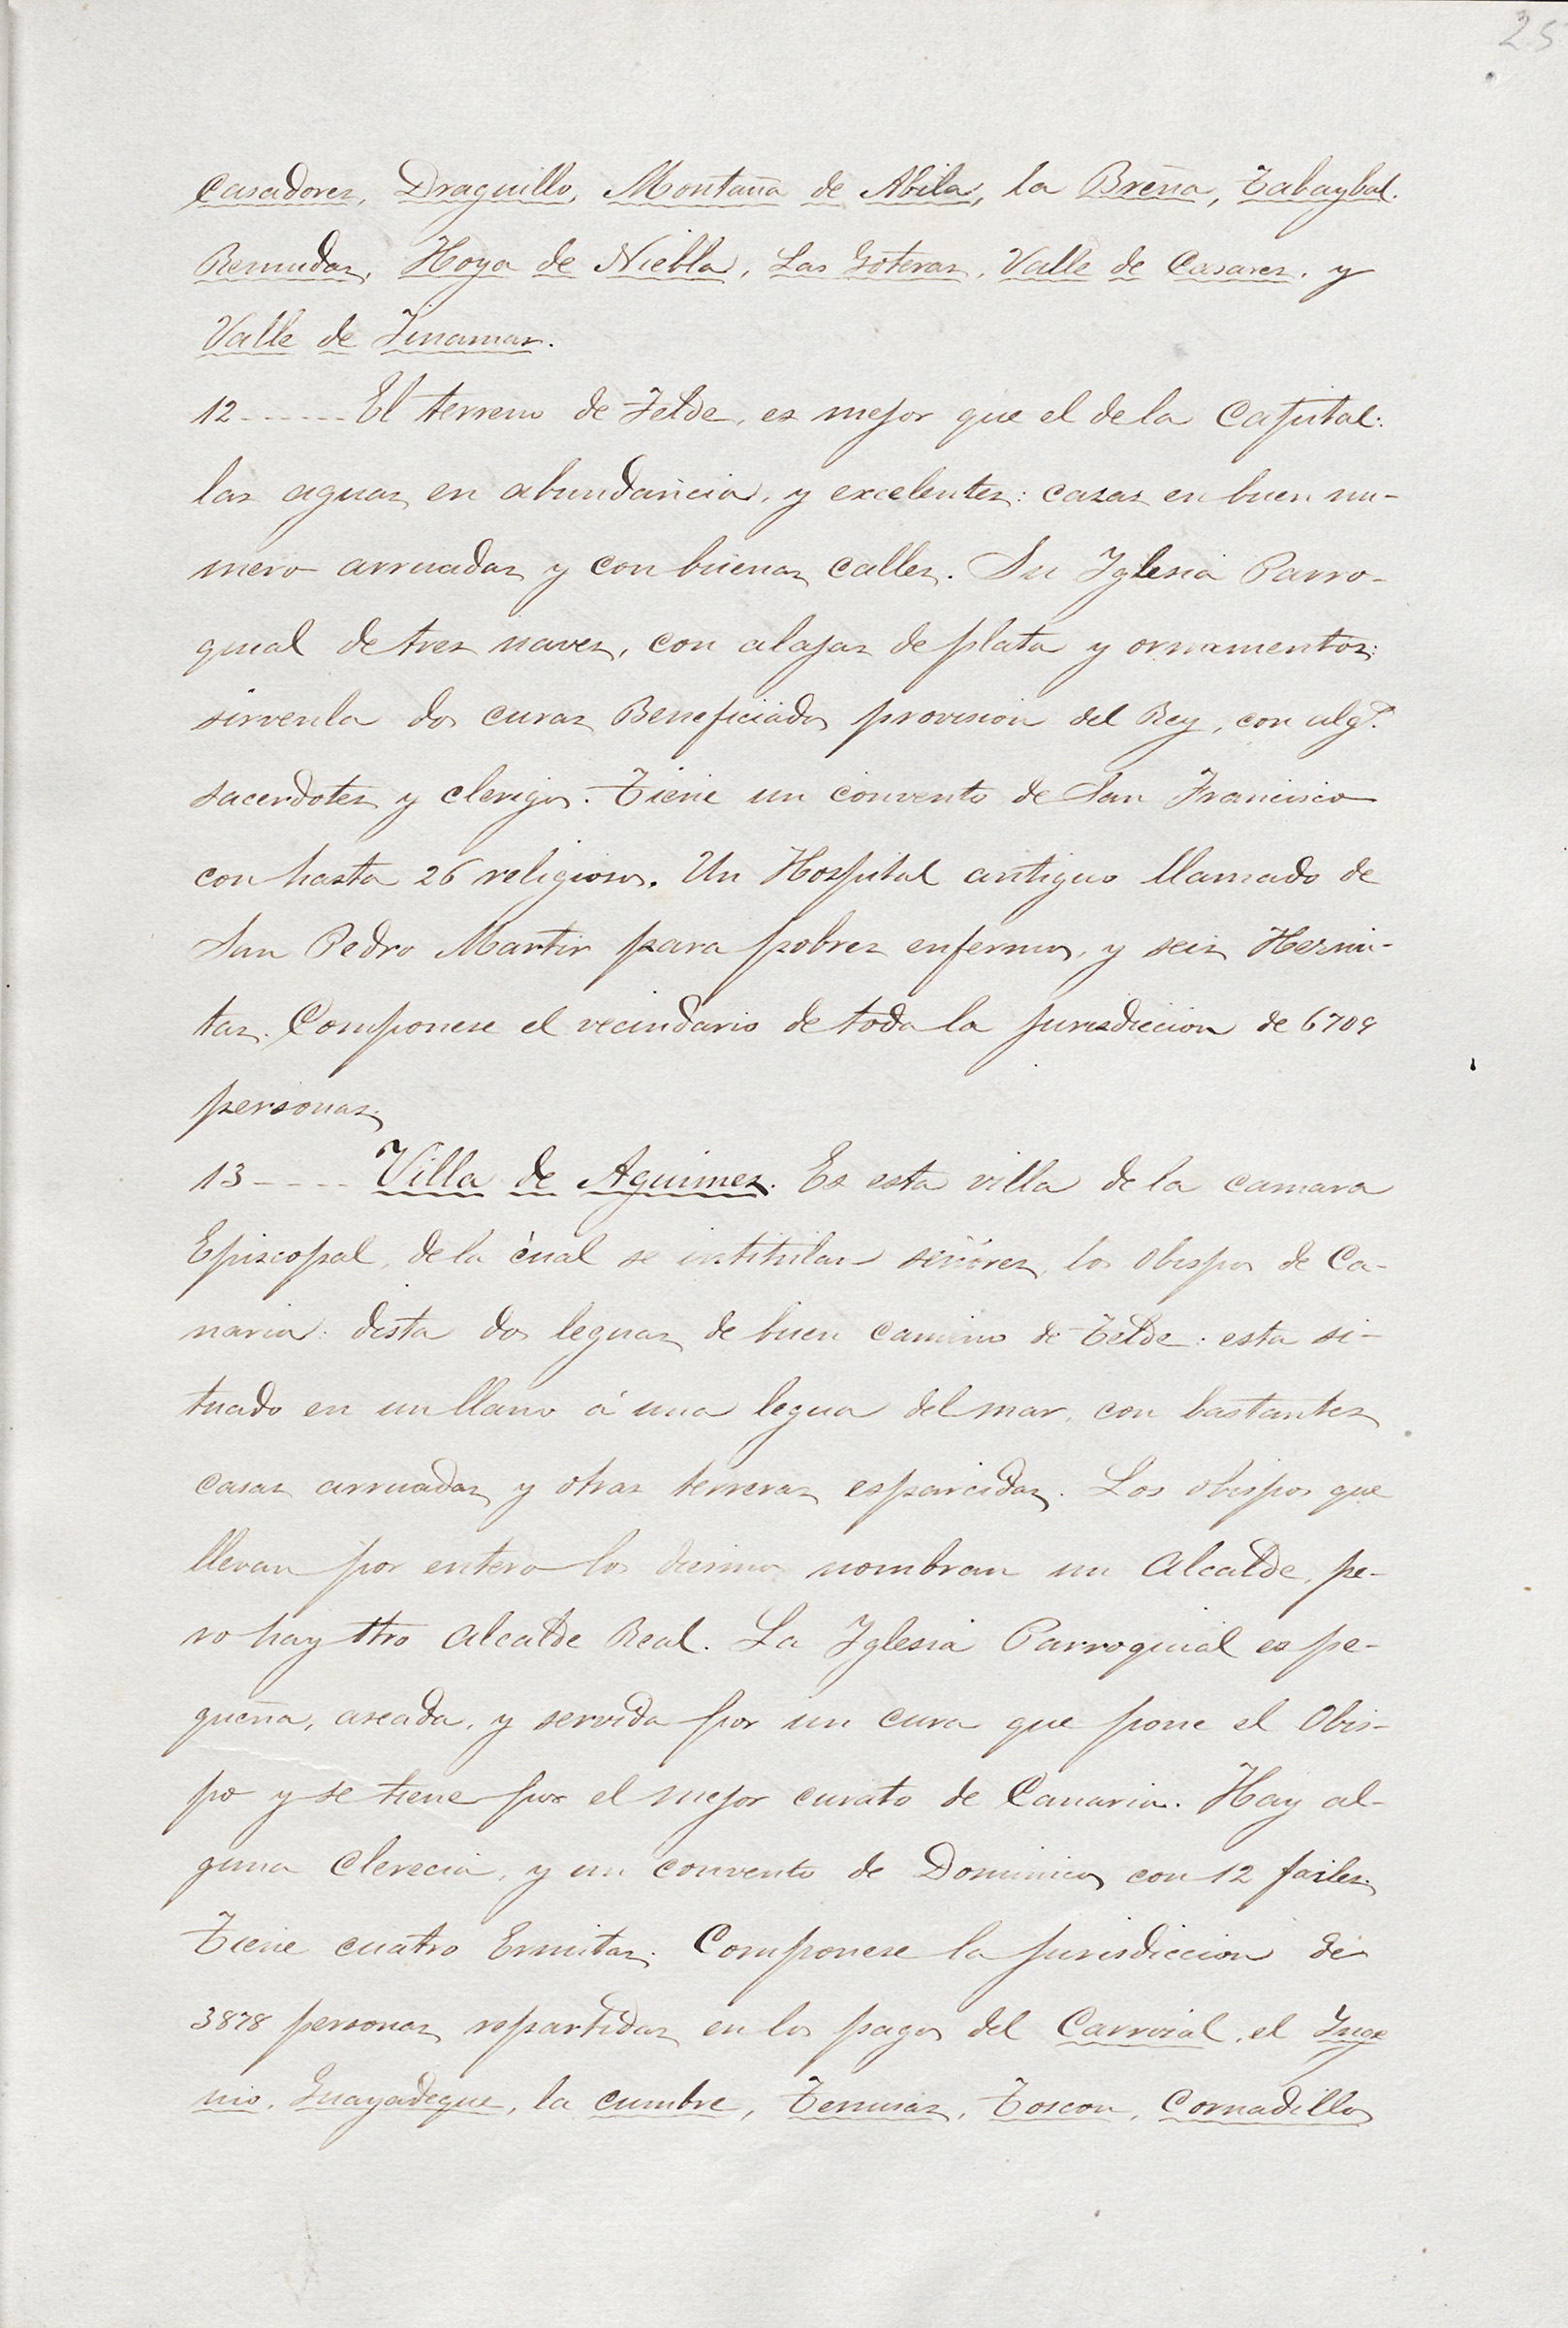 25
Casadores, Draguillo, Montaña de Abila, la Breña, Tabaybal.
Remudas, Hoya de Niebla, Las Goteras, Valle de Casares, y
Valle de Jinamar.
12------ El terreno de Telde, es mejor que el de la Capital:
las aguas en abundancia, y excelentes: casas en buen nu-
mero arruadas y con buenas calles. Su Iglesia Parro-
quial de tres naves, con alajas de plata y ornamentos:
sirvenla dos curas Beneficiados provision del Rey, con algs.
sacerdotes y clerigos. Tiene un convento de San Francisco
con hasta 26 religiosos. Un Hospital antiguo llamado de
San Pedro Martir para pobres enfermos, y seis Hermi-
tas. Componese el vecindario de toda la jurisdiccion de 6709
personas.
13---- Villa de Aguimes. Es esta villa de la camara
Episcopal, de la cual se intitulan señores, los Obispos de Ca-
naria: dista dos leguas de buen camino de Telde: esta si-
tuado en un llano á una legua del mar, con bastantes
casas arruadas y otras terreras esparcidas. Los obispos que
llevan por entero los diesmos nombran un Alcalde, pe-
ro hay otro Alcalde Real. La Iglesia Parroquial es pe-
queña, aseada, y servida por un cura que pone el Obis-
po y se tiene por el mejor curato de Canaria. Hay al-
guna Clerecia, y un convento de Dominicos con 12 failes.
Tiene cuatro Ermitas. Componese la jurisdiccion de
3878 personas repartidas en los pagos del Carrizal, el Inge
nio, Guayadeque, la cumbre, Temisas, Toscon, Cornadillos